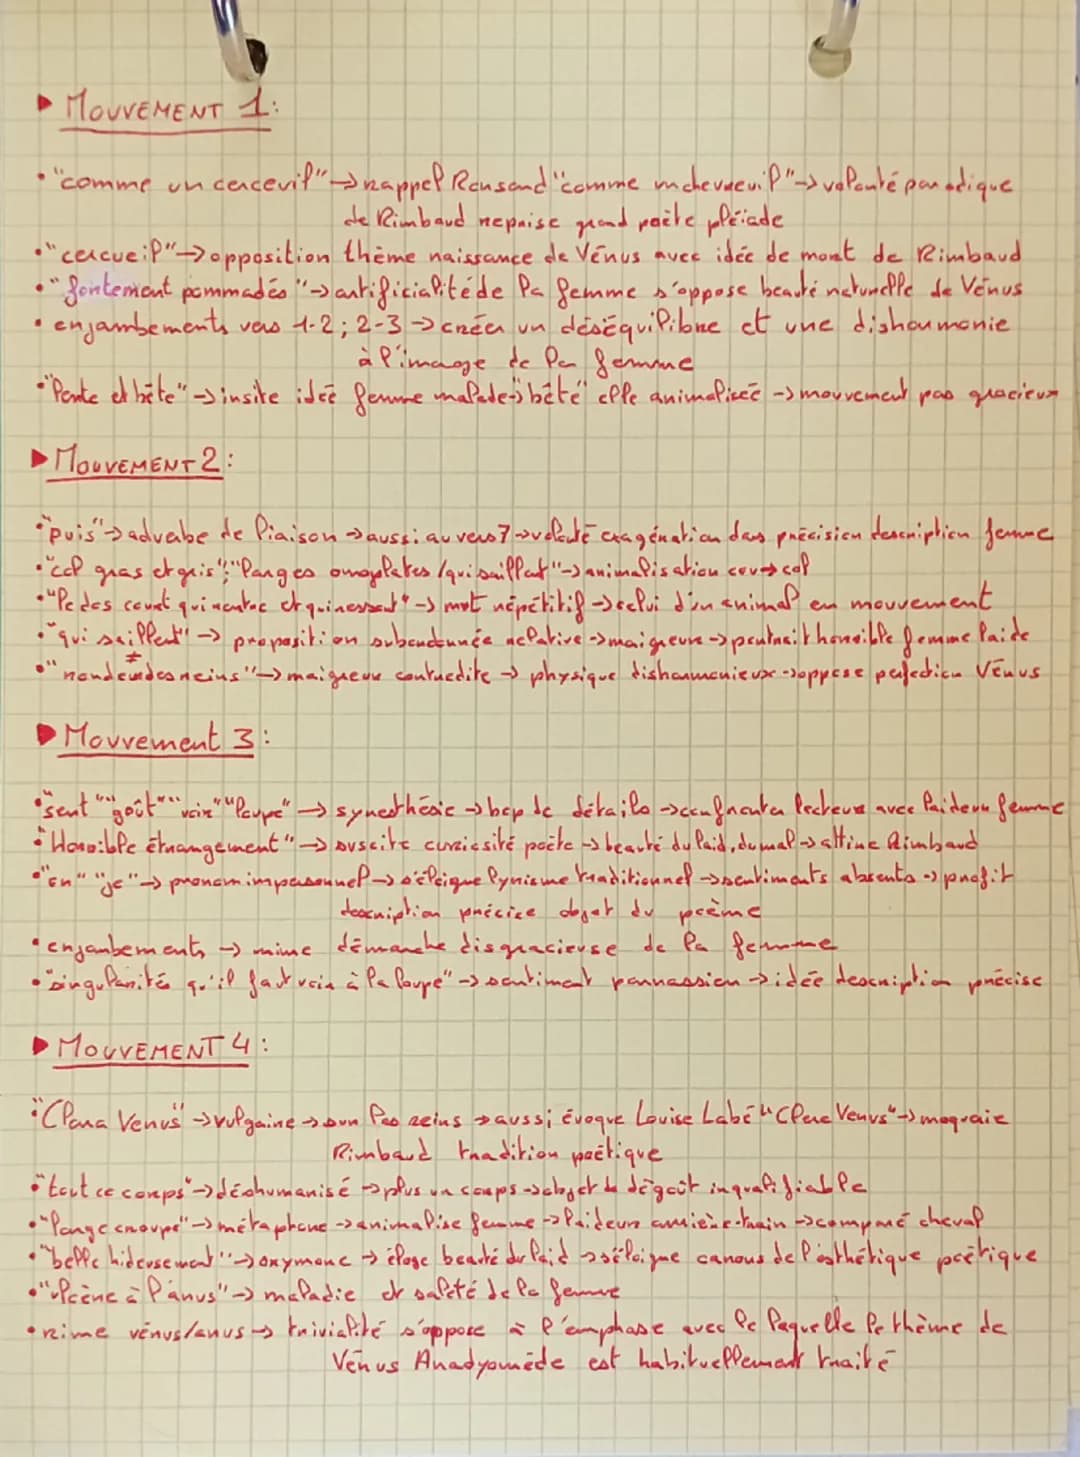 ▶ MOUVEMENT 1:
• "comme un cercevil" → rappel Ronsard "comme un chevrevil" → volonté parodique
de Rimbaud reprise grand poète pléiade
• "cercueil" → opposition thème naissance de Vénus avec idée de mort de Rimbaud
• "fortement pommadés" → artificialité de la femme s'oppose beauté naturelle de Vénus
• enjambements vers 1-2 ; 2-3 → créer un déséquilibre et une disharmonie
à l'image de la femme
• "lente et bête" → insite idée femme malade → "bête" elle animalisée → mouvement pas gracieux
▶ MOUVEMENT 2:
• "puis" → adverbe de liaison → aussi au vers 7 → volonté exagération dans précision description femme
• "col gras et gris" ; "larges omoplates / qui saillent" → animalisation cou → col
• "le dos court qui rentre et qui ressort" → mot répétitif → celui d'un animal en mouvement
• "qui saillent" → proposition subordonnée relative → maigreur → portrait horrible femme laide
≠
• "rondeurs des reins" → maigreur contredite → physique disharmonieux → oppose perfection Vénus
▶ Mouvement 3:
• "sent" "goût" "voir" "loupe" → synesthésie → bcp de détails → confronter lecteur avec laideur femme
• "Horrible étrangement" → suscite curiosité poète → beauté du laid, du mal → attire Rimbaud
• "on" "je" → pronom impersonnel → s'éloigne lyrisme traditionnel → sentiments absents → profit
description précise objet du poème
• enjambements → mime démarche disgracieuse de la femme
• "singularités qu'il faut voir à la loupe" → sentiment parnassien → idée description précise
▶ MOUVEMENT 4:
• "Clara Venus" → vulgaire → sur les reins → aussi évoque Louise Labé "Clere Venus" → moquerie
Rimbaud tradition poétique
• "tout ce corps" → déshumanisé → plus un corps → objet de dégoût inqualifiable
• "large croupe" → métaphore → animalise femme → laideur arrière-train → comparé cheval
• "belle hideusement" → oxymore → éloge beauté du laid → s'éloigne canons de l'esthétique poétique
• "ulcère à l'anus" → maladie et saleté de la femme
• rime vénus/anus → trivialité s'oppose à l'emphase avec le laquelle le thème de
Vénus Anadyomède est habituellement traité